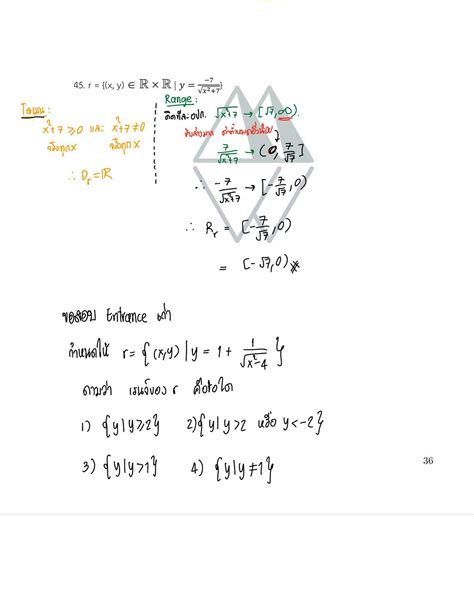 45. r = {(x, y) ∈ ℝ × ℝ | y = -7/√(x²+7)}
โดเมน:
x²+7 ≥ 0 และ x²+7 ≠ 0
จริงทุก x จริงทุก x
∴ Dr = ℝ
Range:
คิดทีละ √(x²+7) → [√7, ∞)
7/√(x²+7) → (0, 7/√7]
∴ -7/√(x²+7) → [-7/√7, 0)
∴ Rr = [-7/√7, 0)
= [-√7, 0) #
ข้อสอบ Entrance เก่า
กำหนดให้ r = {(x,y) | y = 1 + 1/√(x²-4)}
ถามว่า เรนจ์ของ r คือข้อใด
1) {y|y≥2} 2) {y|y>2 หรือ y<-2}
3) {y|y>1} 4) {y|y≠1}
36